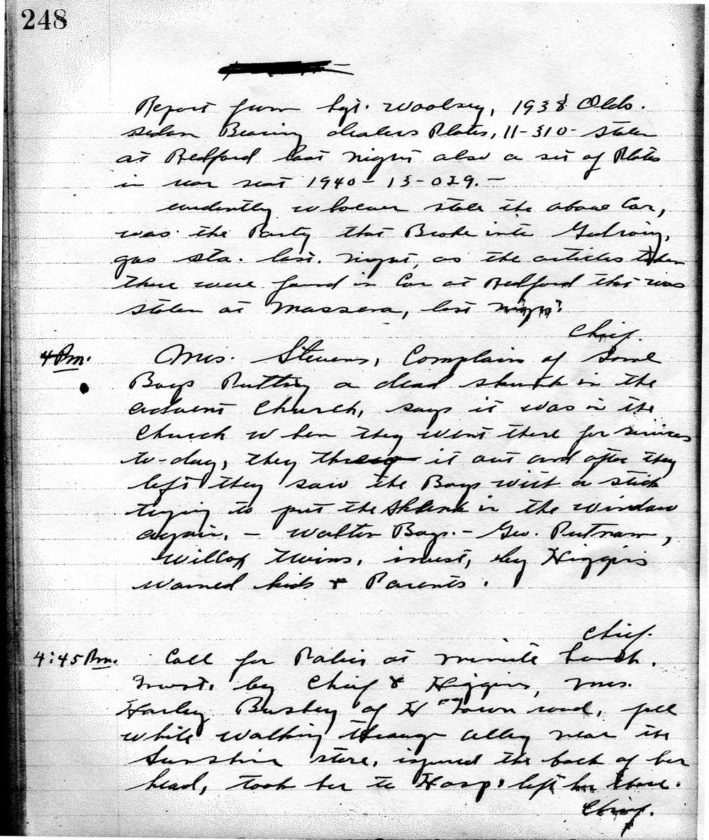 248
Report from Sgt. Woolsey, 1938 Olds.
sedan Bearing dealers Plates, 11-310- stolen
at Bedford last night also a set of Plates
in rear seat 1940- 13-029.-
evidently whoever stole the above Car,
was the Party that Broke into
gas sta. last night, as the articles taken
there were found in Car at Bedford that was
stolen at Massena, last night.
Chief.
4 Pm. Mrs. Stevens, Complain of Some
Boys Putting a dead skunk in the
advent Church, says it was in the
Church when they went there for services
to-day, they threw it out and after they
left they saw the Boys with a stick
trying to put the skunk in the window
again. - Walter Boys. - Geo. Putnam,
Willox twins. invest, by Higgins
warned kids & Parents.
Chief.
4:45 Pm. Call for Police at minute Lunch.
Invest. by Chief & Higgins, Mrs.
Harley Bushey of H Town road, fell
while walking through alley near the
Sunshine store, injured the back of her
head, took her to Hosp. left her there.
Chief.